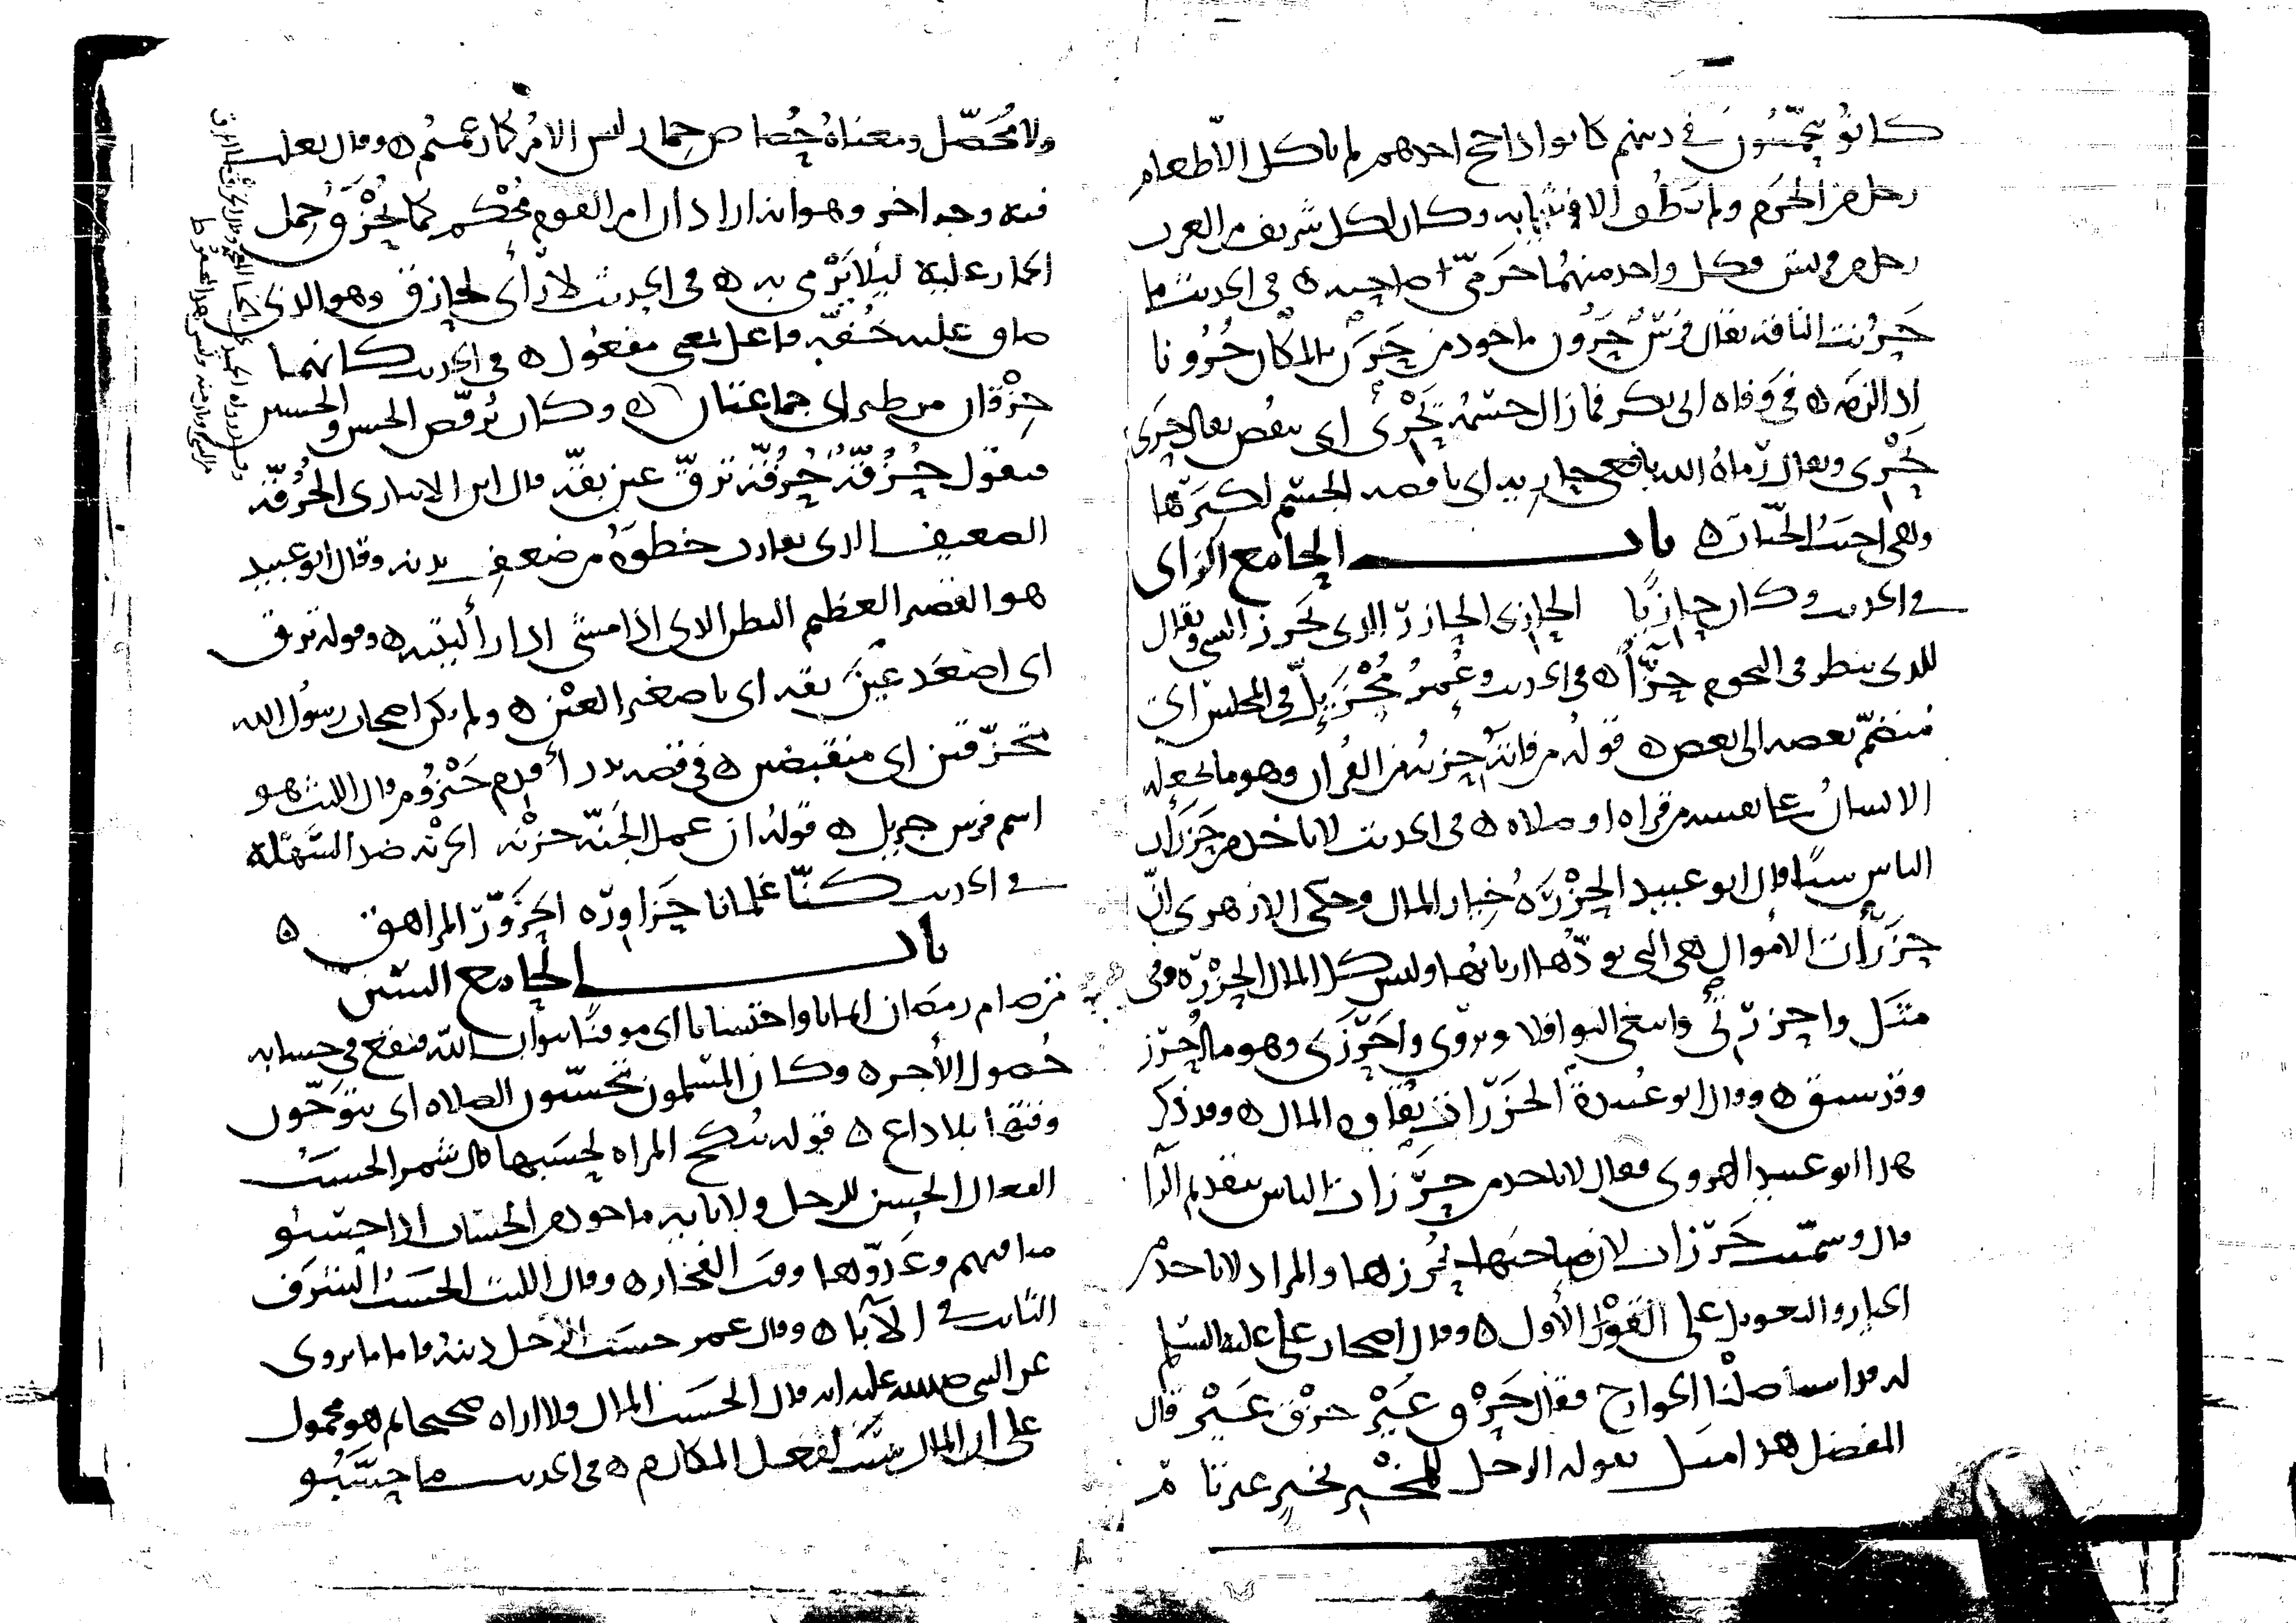 كانو يتحمّسُون في دينهم كانوا اذا حج احدهم لم ياكل الا طعام
رجل من الحَرَم ولم يَطُف الا في ثيابه وكان لكل شريف من العرب
رجل من قريش فكل واحد منهما حَرَميّ صاحبه ٥ في الحديث ما
حَرُنت الناقة يقال فرسٌ حَرُون ماخوذ من حَرَن بالمكان حُرُونا
اذا لزمه ٥ في وَفاه ابي بكر فما زال جسمُه يَحْرى اي ينقص يقال حَرَى
يَحْرى ويقال رماه الله بافعى حارِيه اي ناقصه الجسم لكبرها
وهي اخبث الحيّات ٥ باب الحا مع الزاي
في الحديث وكان حازِيًا الحازي الحازر الذي يَحزر الشي ويقال
للذي ينظر في النجوم حزّاً ٥ في الحديث وعُمرُ مُحْزَئِلّ في المجلس اي
منضمّ بعضه الى بعض ٥ قوله من فاته حِزبُه من القران وهو ما يجعله
الانسانُ على نفسه من قراه او صلاه ٥ في الحديث لا ياخذ من حَزَرات
الناس شيًا قال ابو عبيد الحَزْرَهُ خيار المال وحكى الازهري انّ
حَزَرات الاموال هي التي يودّها اربابها وليس كل المال الحزْرَه وفي
مَثَل واحَزَرَتي وابتغي النوافلا ويروى واحَرَزَى وهو ما احرز
وقد سبق ٥ وقال ابو عُبيدة الحَزَرات نقاوه المال ٥ وقد ذكر
هذا ابو عبيد الهروي فقال لا ياخذ من حَرَزات الناس بتقديم الرا
قال وسمّيت حَرَزات لان صاحبها يُحرزها والمراد لا ياخذ من
الخيار والتعويل على القَوْل الأول ٥ وقال اصحاب علي عليه السلم
له قد استاصلْنا الخوارج فقال حَزْق عَيْرٍ حزْق عَيْر قال
المفضل هذا مثل يقوله الرجل للمُخْبِر بخبرٍ غير تام
ولا مُحَصّل ومعناهُ حُصاص حمار ليس الامْر كما زعمتم ٥ وقال ثعلب
فيه وجه اخر وهو انه اراد ان امر القوم مُحْكم كما يحْزَقُ حِمل
الحمار عليه ليلا يَرْمي به ٥ في الحديث لا رأي لحازق وهو الذي
ضاق عليه خُفّه فاعل بمعنى مفعُول ٥ في الحديث كانهما
حِزْقان من طير اي جماعتان ٥ وكان يُرقّص الحسن والحسين
فيقول حُزُقّهْ حُزُقّه ترقّ عين بقّه قال ابن الانباري الحُزُقّه
الضعيف الذي يقارب خطوَهُ من ضعف بدنه وقال ابو عبيد
هو القصير العظيم البطن الذي اذا مشى ادار أليتيه ٥ وقوله ترق
اي اصْعَد عَينَ بقه اي يا صغير العَيْن ٥ ولم يكن اصحاب رسُول الله
متحزّقين اي منقبضين ٥ في قصه بدر أقدم حَيْزوُم قال الليث هو
اسم فرس جبريل ٥ قولهُ ان عمل الجَنّه حَزْنَه الحَزنَه ضد السَّهْلة
في الحديث كنّا غلمانا حَزاوِرَه الحَزَوّرْ المراهق ٥
باب الحا مع السّين
من صام رمضان ايمانا واحتسابا اي موقنًا بثواب الله فيقع في حسابه
حُصول الأجر ٥ وكان المسْلمون يتحسّبون الصلاه اي يتوَخّون
وقتها بلا داع ٥ قوله تُنكح المراه لحَسَبها قال شمر الحسَبُ
الفعال الحسن للرجل ولابايه ماخوذ من الحساب اذا حَسَبُو
مناقبهم وعَدّوها وقت الفخار ٥ وقال الليث الحَسَبُ الشرَف
الثابت في الآبا ٥ وقال عمر حسَبُ الرّجل دينهُ فاما ما يروى
عن النبي صلى الله عليه انه قال الحَسَب المال فلا اراه صحيحا ثم هو محمول
على ان المال سَبَبٌ لفعل المكارم ٥ في الحديث ما حَسّبُو